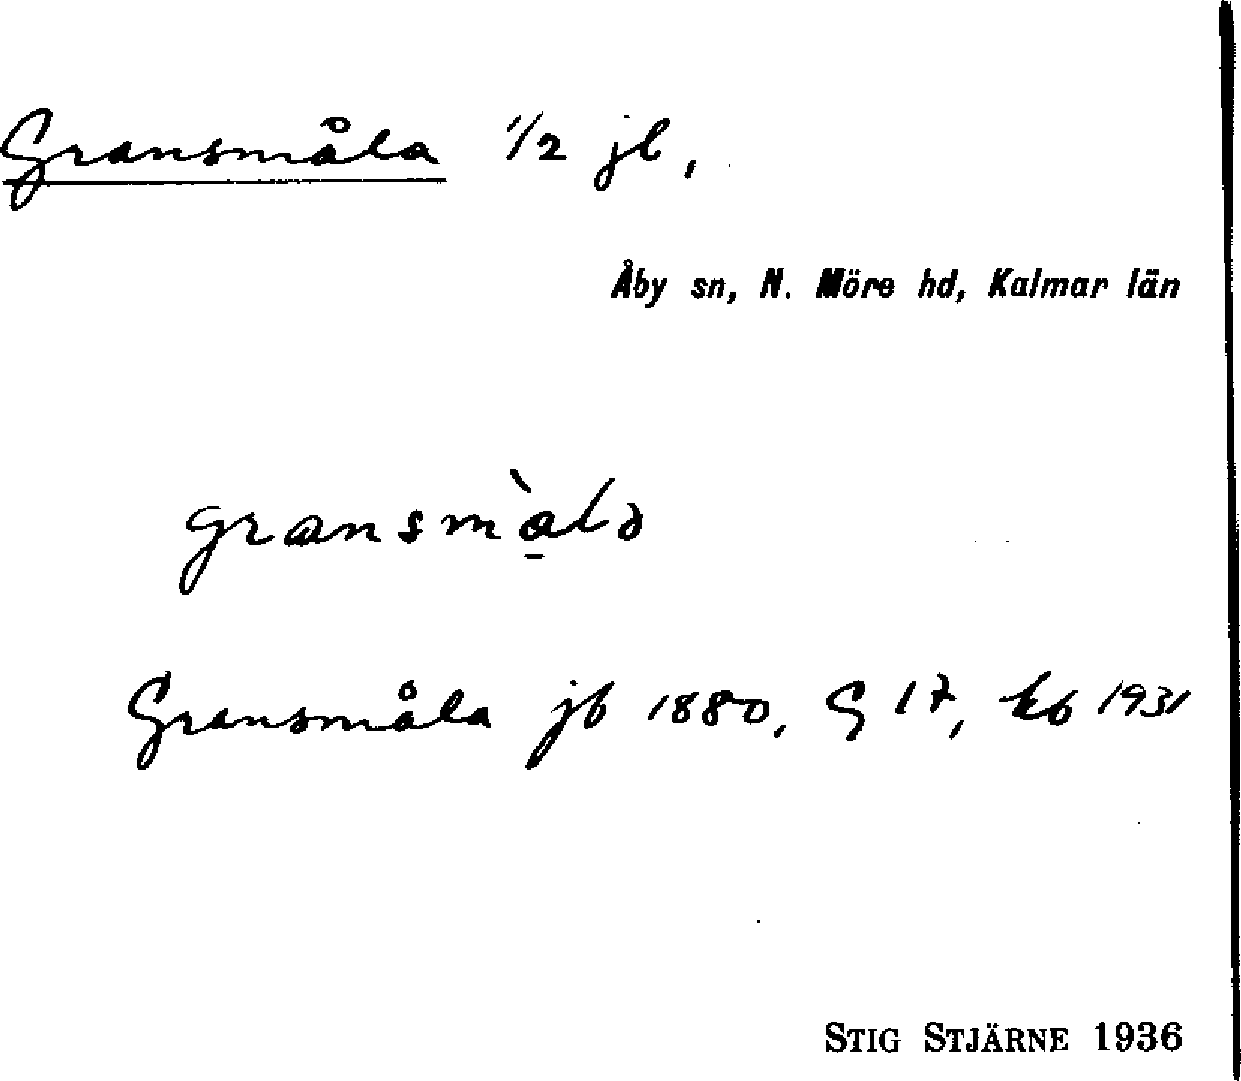 Gransmåla 1/2 jb,
Åby sn, N. Möre hd, Kalmar län
Gransmåla jb 1880, G 17, kb 1931
STIG STJÄRNE 1936